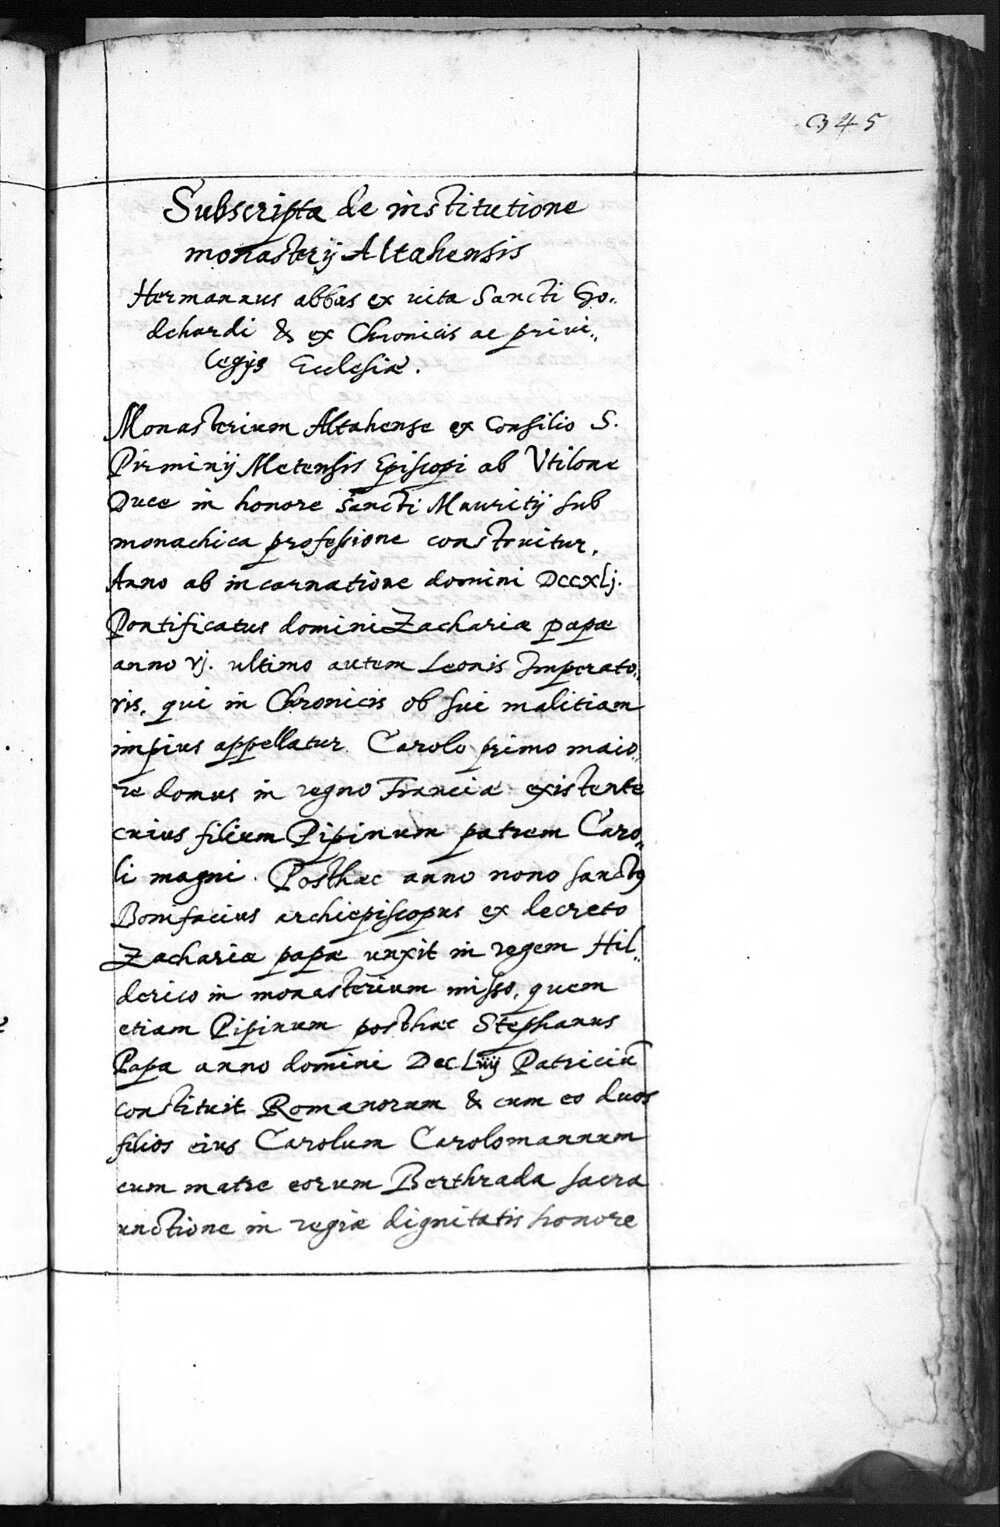 345
Subscripta de institutione
monasterij Altahensis
Hermannus abbas ex uita Sancti Go„
dehardi & ex Chronicis ac priui„
legijs Ecclesiæ.
Monasterium Altahense ex Consilio S.
Pirminij Metensis Episcopi ab Vtilone
Duce in honore Sancti Mauritij sub
monachica professione construitur.
Anno ab incarnatione domini DCCXLj.
Pontificatus domini Zachariæ papæ
anno vj. ultimo autem Leonis Imperato„
ris, qui in Chronicis ob sui malitiam
impius appellatur. Carolo primo maio„
re domus in regno Franciæ existente
cuius filium Pipinum patrem Caro„
li magni. Posthac anno nono sanctus
Bonifacius archiepiscopus ex decreto
Zachariæ papæ unxit in regem Hil„
derico in monasterium misso, quem
etiam Pipinum posthac Stephanus
Papa anno domini DCCLiiij Patriciũ
constituit Romanorum & cum eo duos
filios eius Carolum Carolomannum
cum matre eorum Berthrada sacra
unctione in regiæ dignitatis honore